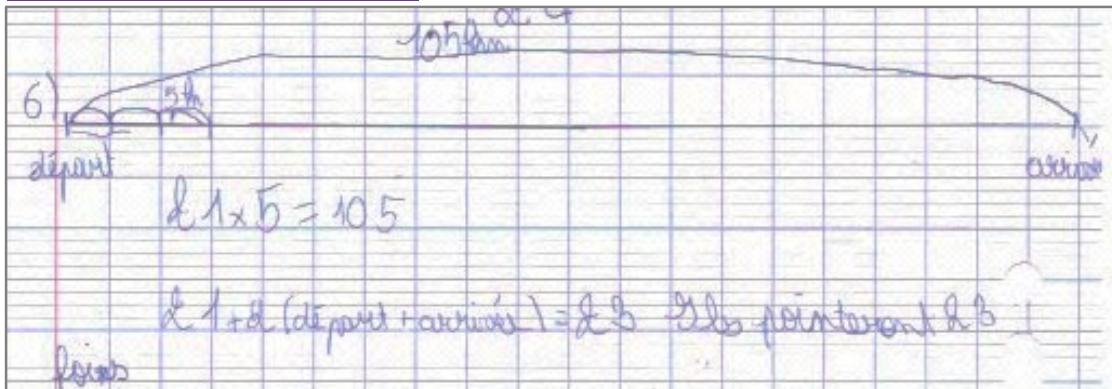 105 km
6) 5 km
départ arrivée
21 x 5 = 105
21 + 2 (départ + arrivée) = 23 Ils pointeront 23
foies